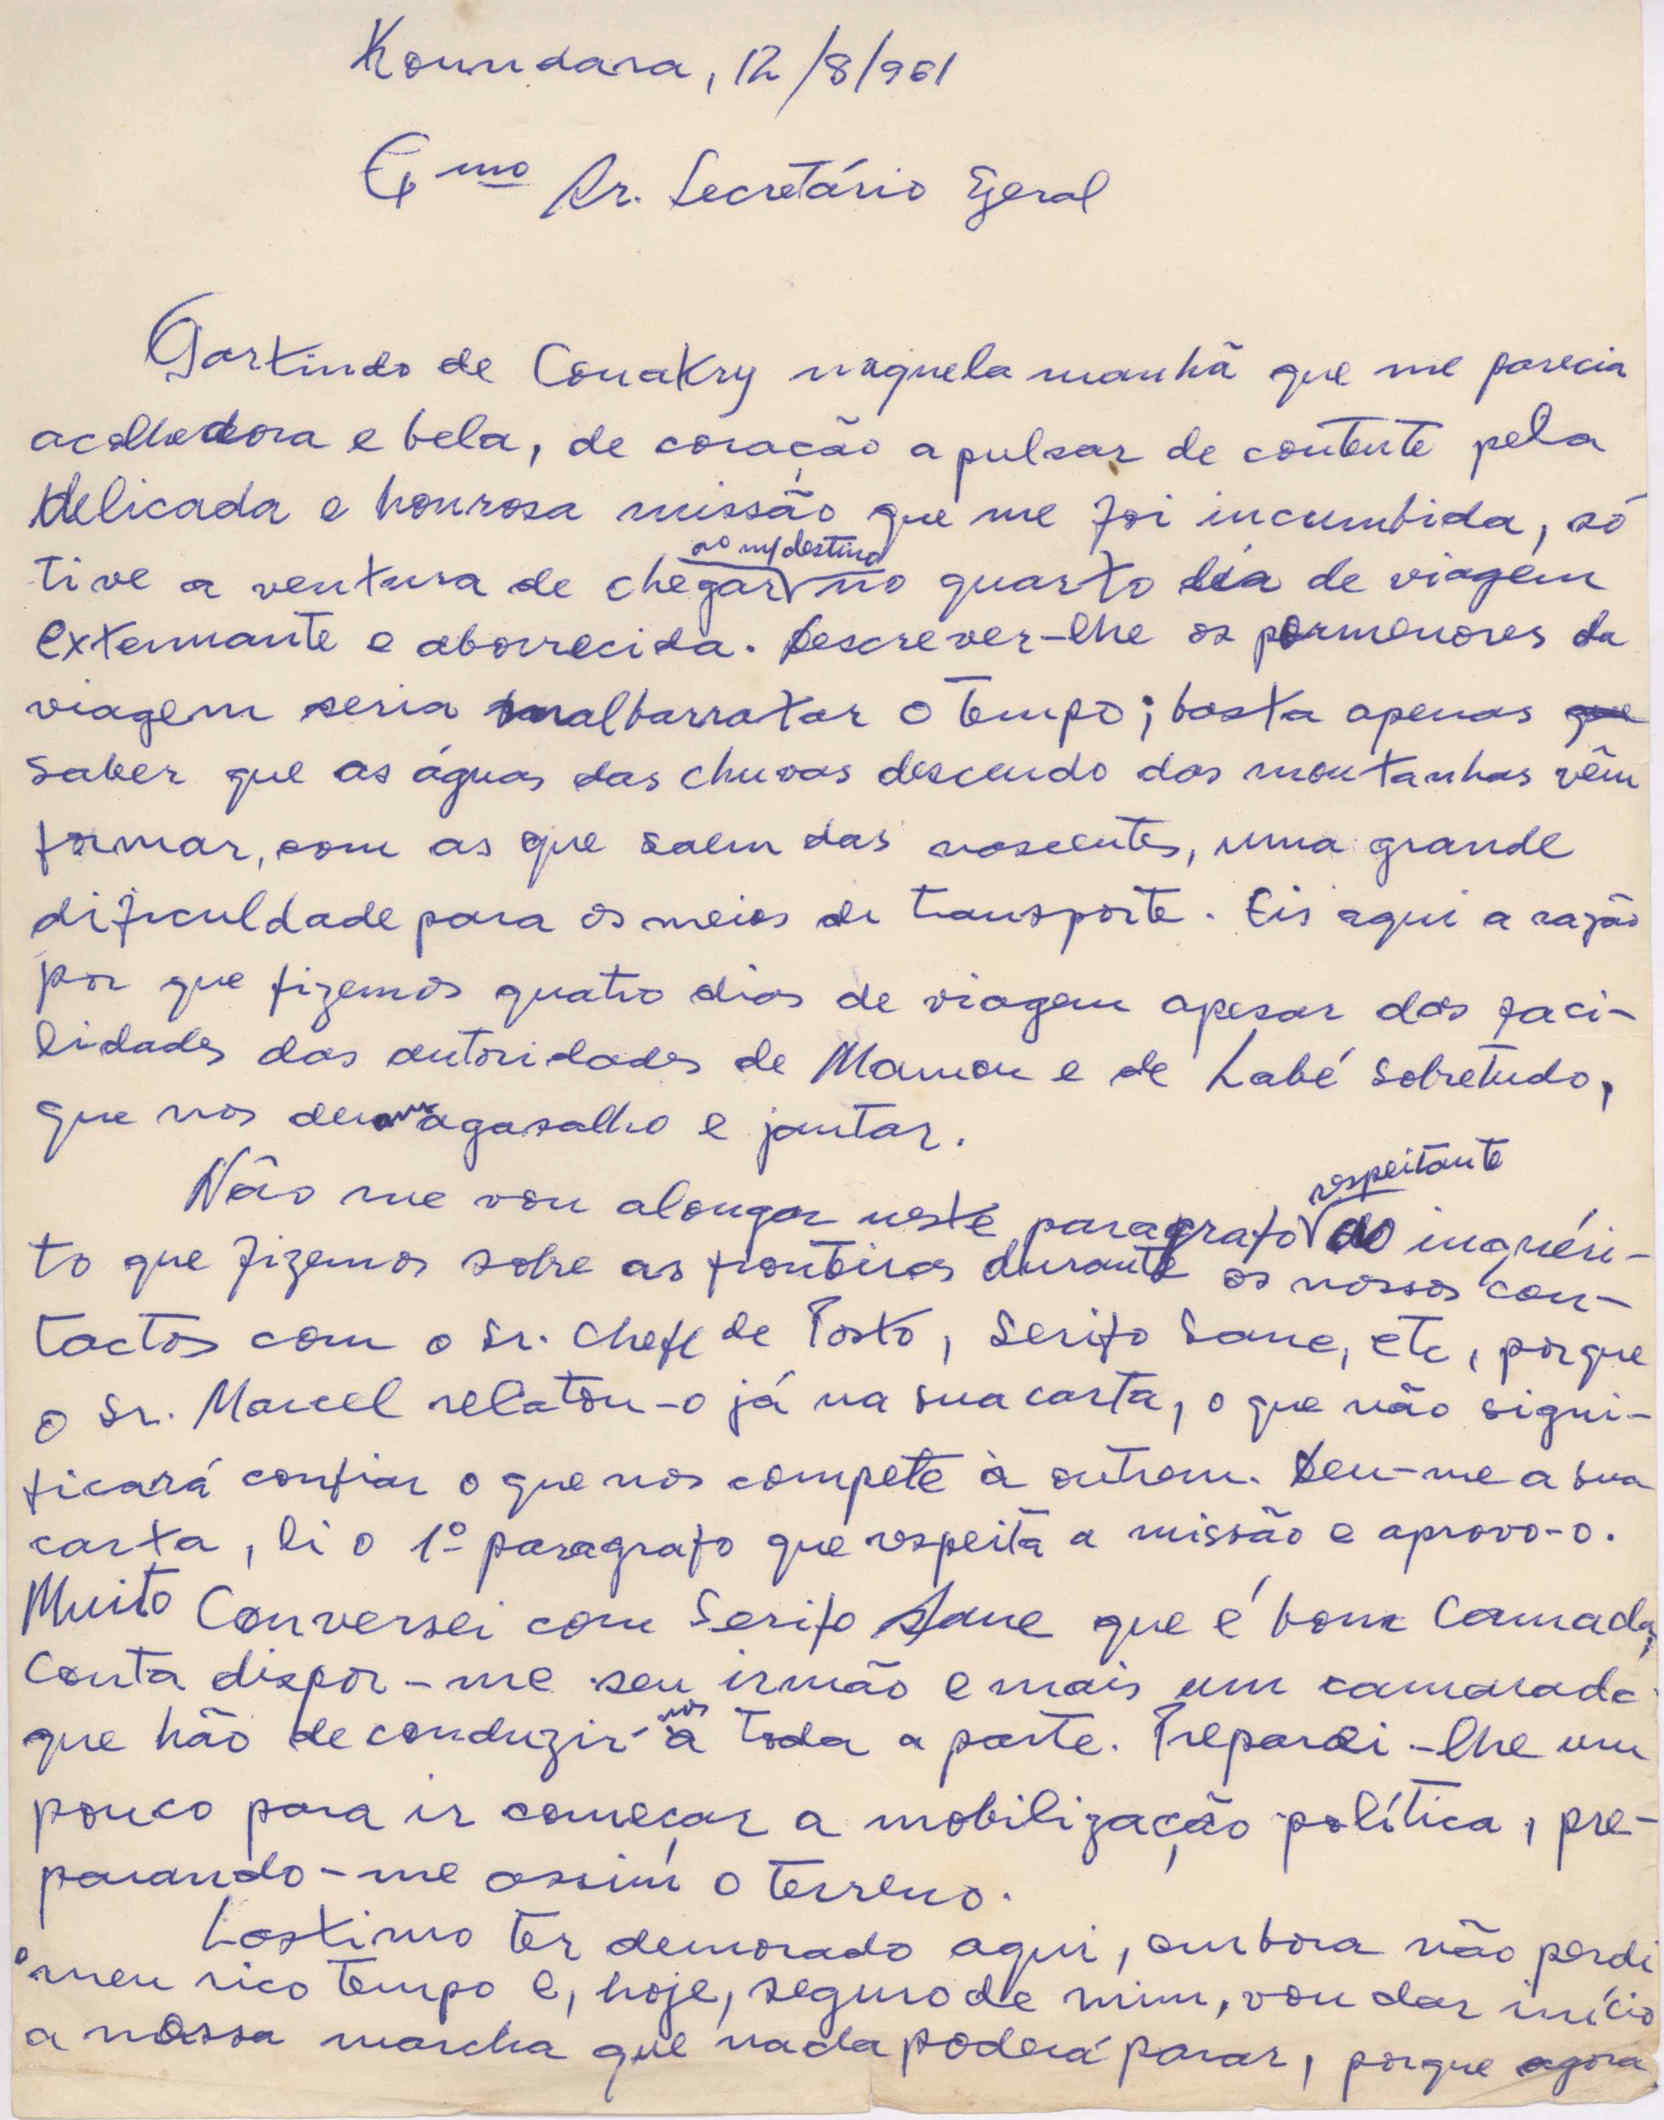 Koundara, 12/8/961
Exmo Sr. Secretário Geral
Partindo de Conakry naquela manhã que me parecia
acolhedora e bela, de coração a pulsar de contente pela
delicada e honrosa missão que me foi incumbida, só
tive a ventura de chegar ao m/ destino no quarto dia de viagem
extenuante e aborrecida. Descrever-lhe os pormenores da
viagem seria malbarratar o tempo; basta apenas
saber que as águas das chuvas descendo das montanhas vêm
formar, com as que saem das nascentes, uma grande
dificuldade para os meios de transporte. Eis aqui a razão
por que fizemos quatro dias de viagem apesar das faci-
lidades das autoridades de Mamou e de Labé sobretudo,
que nos deram agasalho e jantar.
Não me vou alongar neste paragrafo respeitante ao inquéri-
to que fizemos sobre as fronteiras durante os nossos con-
tactos com o Sr. Chefe de Posto, Serifo Sane, etc, porque
o Sr. Marcel relatou-o já na sua carta, o que não signi-
ficará confiar o que nos compete à outrem. Deu-me a sua
carta, li o 1º paragrafo que respeita a missão e aprovo-o.
Muito Conversei com Serifo Sane que é bom Camarada,
Conta dispor-me seu irmão e mais um camarada
que hão de conduzir-nos a toda a parte. Preparei-lhe um
pouco para ir começar a mobilização política, pre-
parando-me assim o terreno.
Lastimo ter demorado aqui, embora não perdi
o meu rico tempo e, hoje, seguro de mim, vou dar início
a nossa marcha que nada poderá parar, porque agora